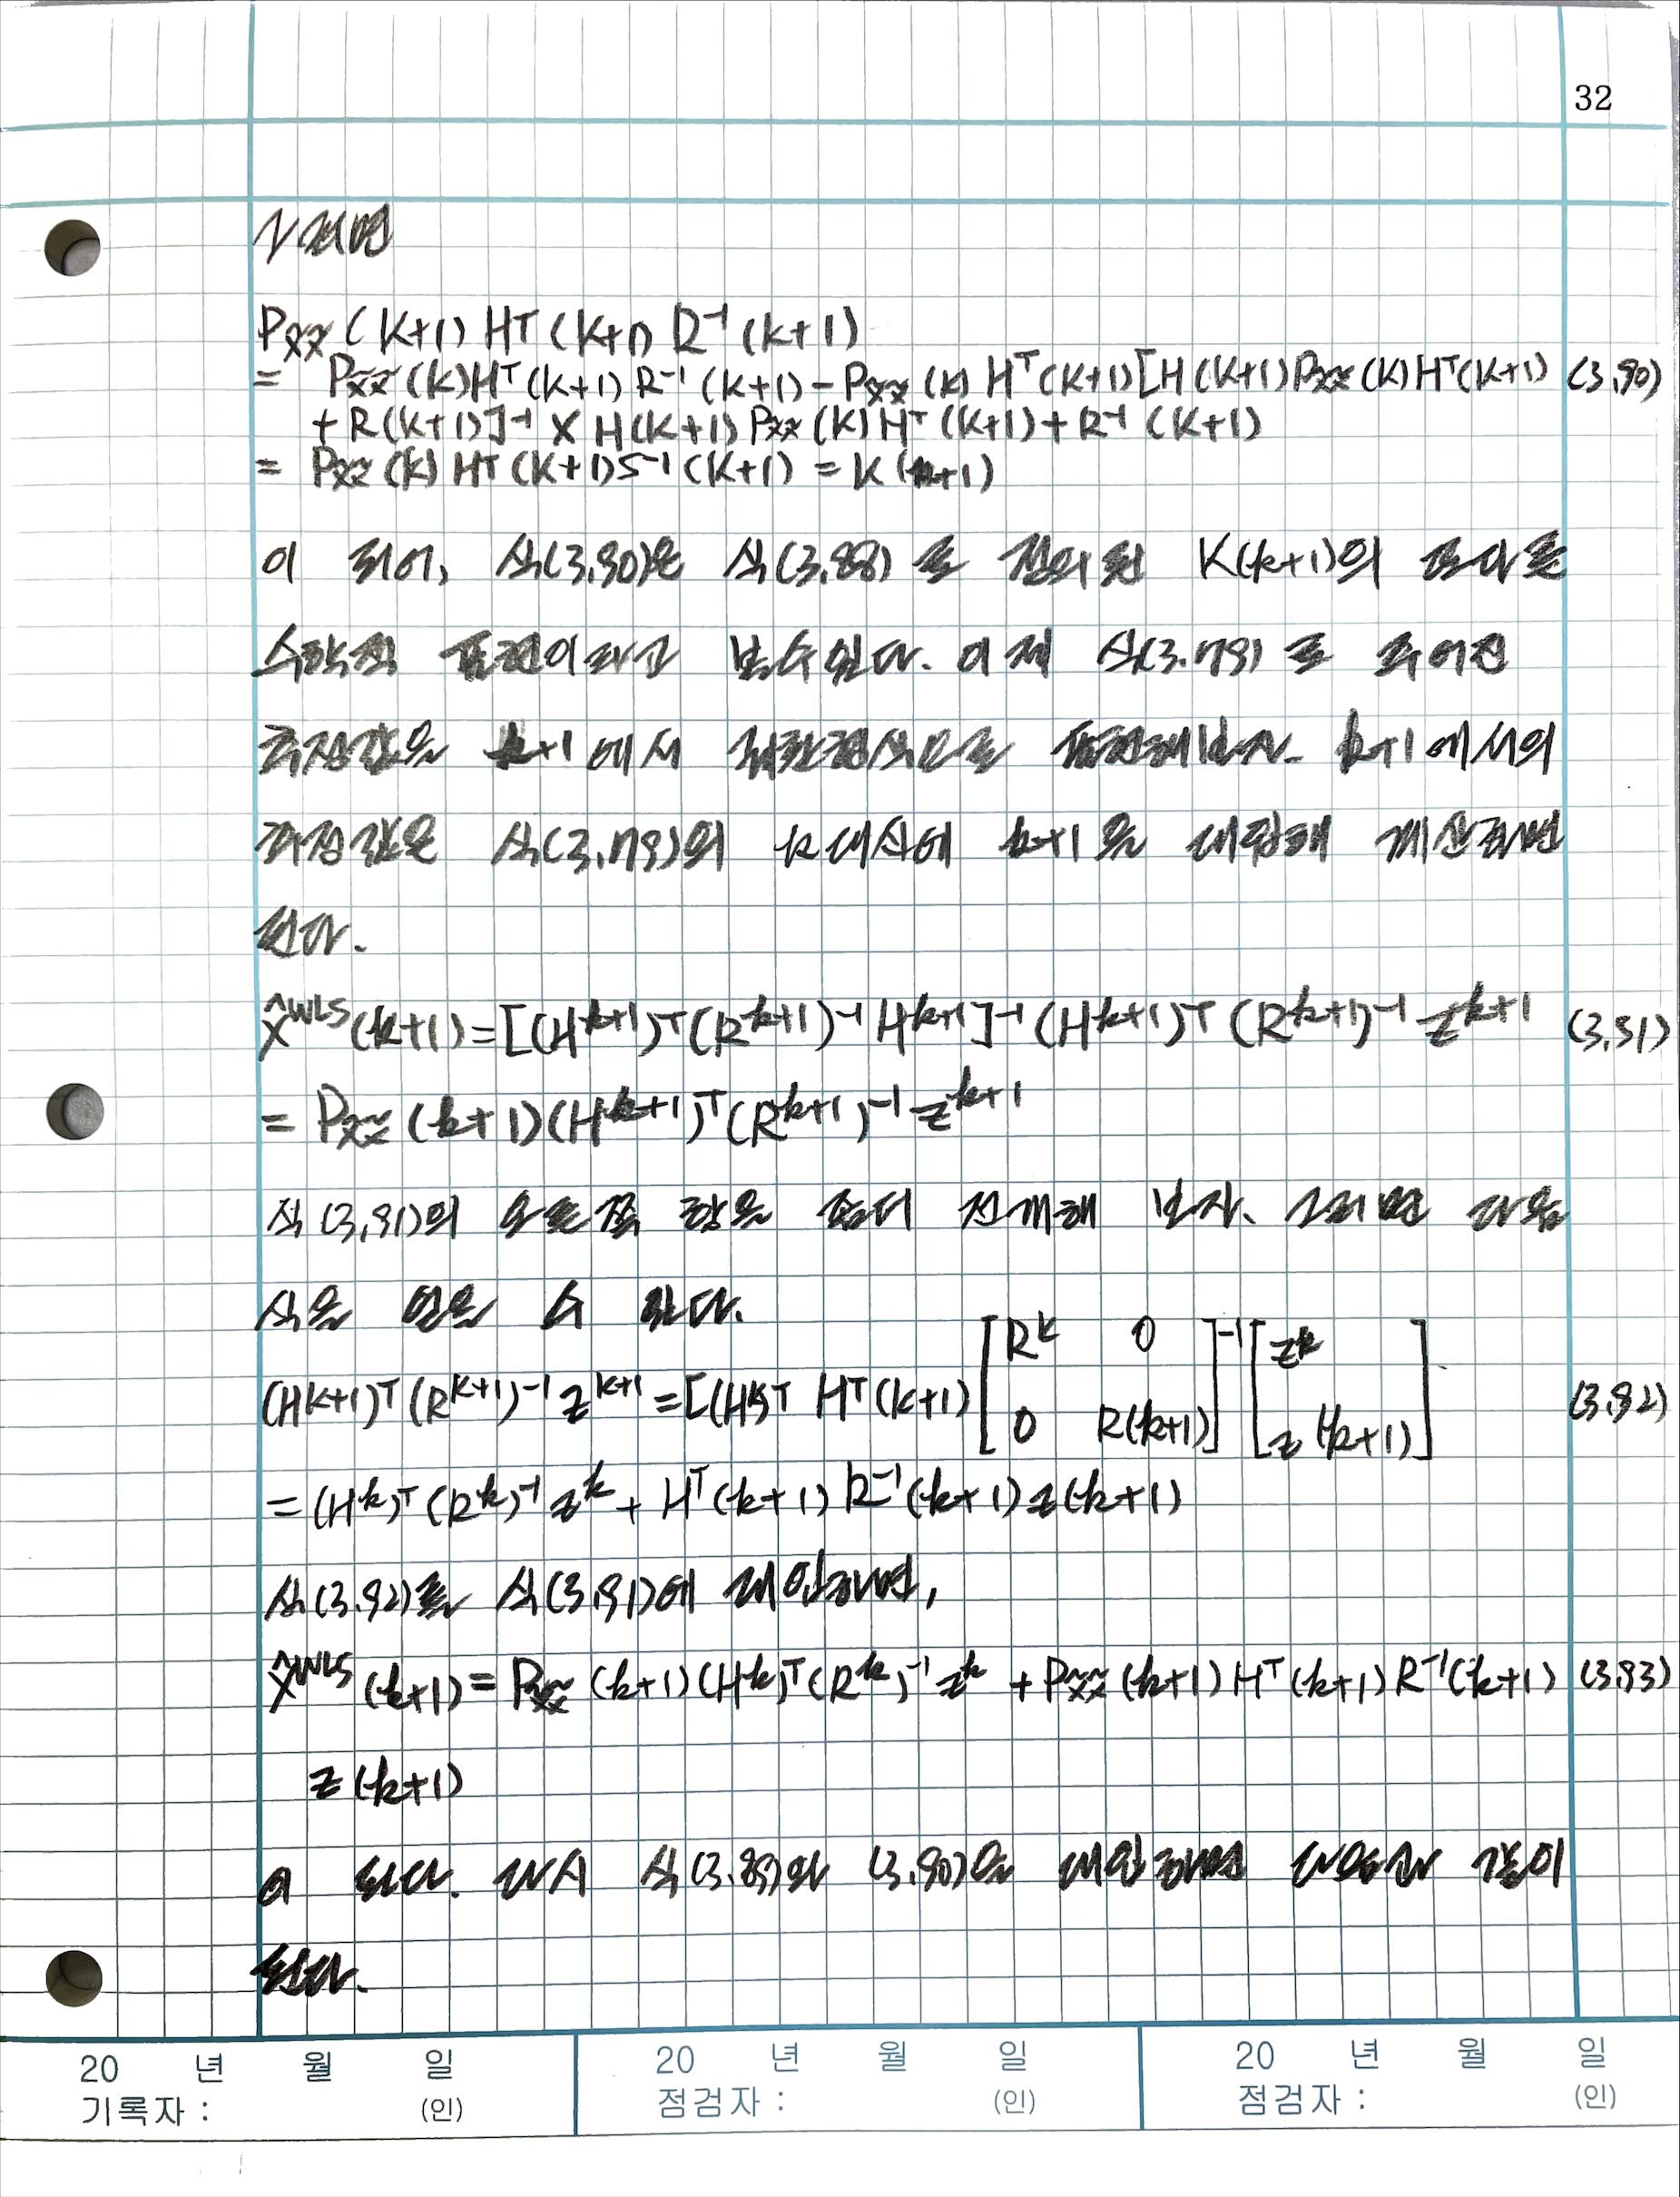 32
그러면
P_x̃x̃ (k+1) Hᵀ (k+1) R⁻¹ (k+1)
= P_x̃x̃ (k) Hᵀ (k+1) R⁻¹ (k+1) - P_x̃x̃ (k) Hᵀ (k+1) [H (k+1) P_x̃x̃ (k) Hᵀ (k+1) (3.90)
+ R (k+1)]⁻¹ × H (k+1) P_x̃x̃ (k) Hᵀ (k+1) + R⁻¹ (k+1)
= P_x̃x̃ (k) Hᵀ (k+1) S⁻¹ (k+1) = K (k+1)
이 되어, 식(3.90)은 식(3.88)로 정의된 K(k+1)의 또다른
수학적 표현이라고 볼수있다. 이제 식(3.79)로 주어진
추정값을 k+1에서 귀환형식으로 표현해보자. k+1에서의
추정값은 식(3.79)의 k대신에 k+1을 대입해 계산하면
된다.
x̂^WLS (k+1) = [(H^k+1)ᵀ (R^k+1)⁻¹ H^k+1]⁻¹ (H^k+1)ᵀ (R^k+1)⁻¹ z^k+1 (3.91)
= P_x̃x̃ (k+1) (H^k+1)ᵀ (R^k+1)⁻¹ z^k+1
식(3.91)의 오른쪽 항을 좀더 전개해 보자. 그러면 다음
식을 얻을 수 있다.
(H^k+1)ᵀ (R^k+1)⁻¹ z^k+1 = [(H^k)ᵀ Hᵀ (k+1) [R^k 0 0 R(k+1)]⁻¹ [z^k z(k+1)] (3.92)
= (H^k)ᵀ (R^k)⁻¹ z^k + Hᵀ (k+1) R⁻¹ (k+1) z (k+1)
식(3.92)를 식(3.91)에 대입하면,
x̂^WLS (k+1) = P_x̃x̃ (k+1) (H^k)ᵀ (R^k)⁻¹ z^k + P_x̃x̃ (k+1) Hᵀ (k+1) R⁻¹ (k+1) (3.93)
z (k+1)
이 된다. 다시 식(3.89)와 (3.90)을 대입하면 다음과 같이
된다.
20 년 월 일 20 년 월 일 20 년 월 일
기록자 : (인) 점검자 : (인) 점검자 : (인)